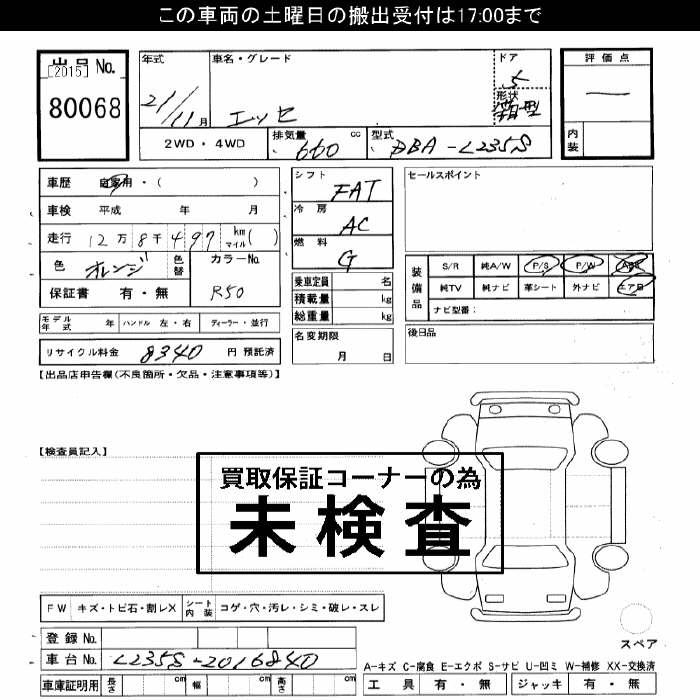 この車両の土曜日の搬出受付は17:00まで
出品No.
[2015]
80068
年式
21/11月
車名・グレード
エッセ
ドア
5
形状
箱型
評価点
—
内装
2WD・4WD
排気量 cc
660
型式
DBA-L235S
車歴 自家用・( )
車検 平成 年 月
走行 12万8千497 km マイル( )
色 オレンジ 色替
カラーNo.
R50
保証書 有・無
シフト FAT
冷房 AC
燃料 G
乗車定員 名
積載量 kg
総重量 kg
名変期限
月 日
セールスポイント
装備品
S/R 純A/W P/S P/W ABS
純TV 純ナビ 革シート 外ナビ エアB
ナビ型番:
後日品
モデル年式 年 ハンドル 左・右 ディーラー・並行
リサイクル料金 8340 円 預託済
【出品店申告欄(不良箇所・欠品・注意事項等)】
【検査員記入】
買取保証コーナーの為
未検査
FW キズ・トビ石・割レX シート内装 コゲ・穴・汚レ・シミ・破レ・スレ
スペア
登録No.
車台No. L235S-2016840
車庫証明用 長さ cm 幅 cm 高さ cm
A-キズ C-腐食 E-エクボ S-サビ U-凹ミ W-補修 XX-交換済
工具 有・無 ジャッキ 有・無